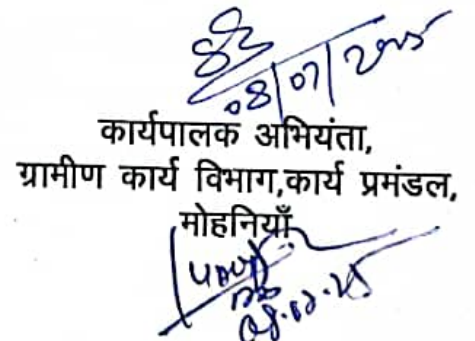 08/07/2025
कार्यपालक अभियंता,
ग्रामीण कार्य विभाग,कार्य प्रमंडल,
मोहनियाँ